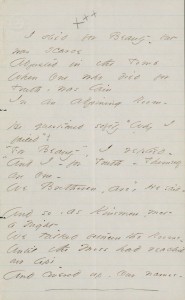 I died for Beauty - but
was scarce
Adjusted in the Tomb
When One who died for
Truth, was lain
In an adjoining Room -
He questioned softly "Why I
failed"?
"For Beauty", I replied -
And I - for Truth - Themself
are One -
We Bretheren, are", He said -
And so, as Kinsmen, met
a Night -
We talked between the Rooms -
Until the Moss had reached
our lips -
And covered up - our names -